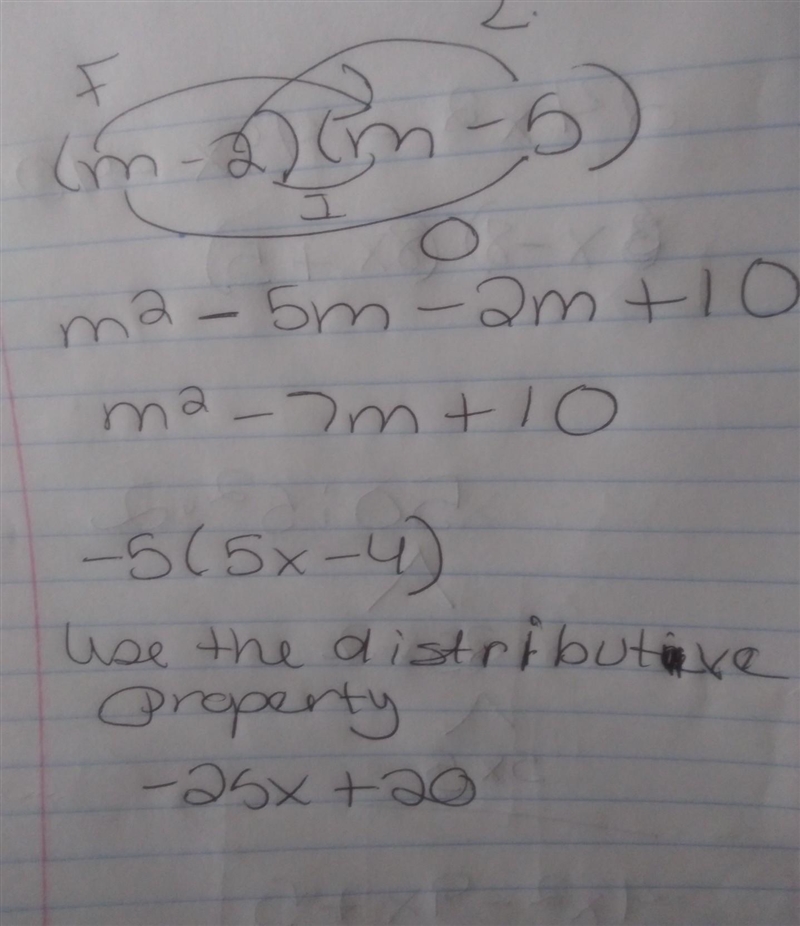 L.
F
(m - 2)(m - 5)
I
O
m² - 5m - 2m + 10
m² - 7m + 10
-5(5x - 4)
Use the distributive
property
-25x + 20